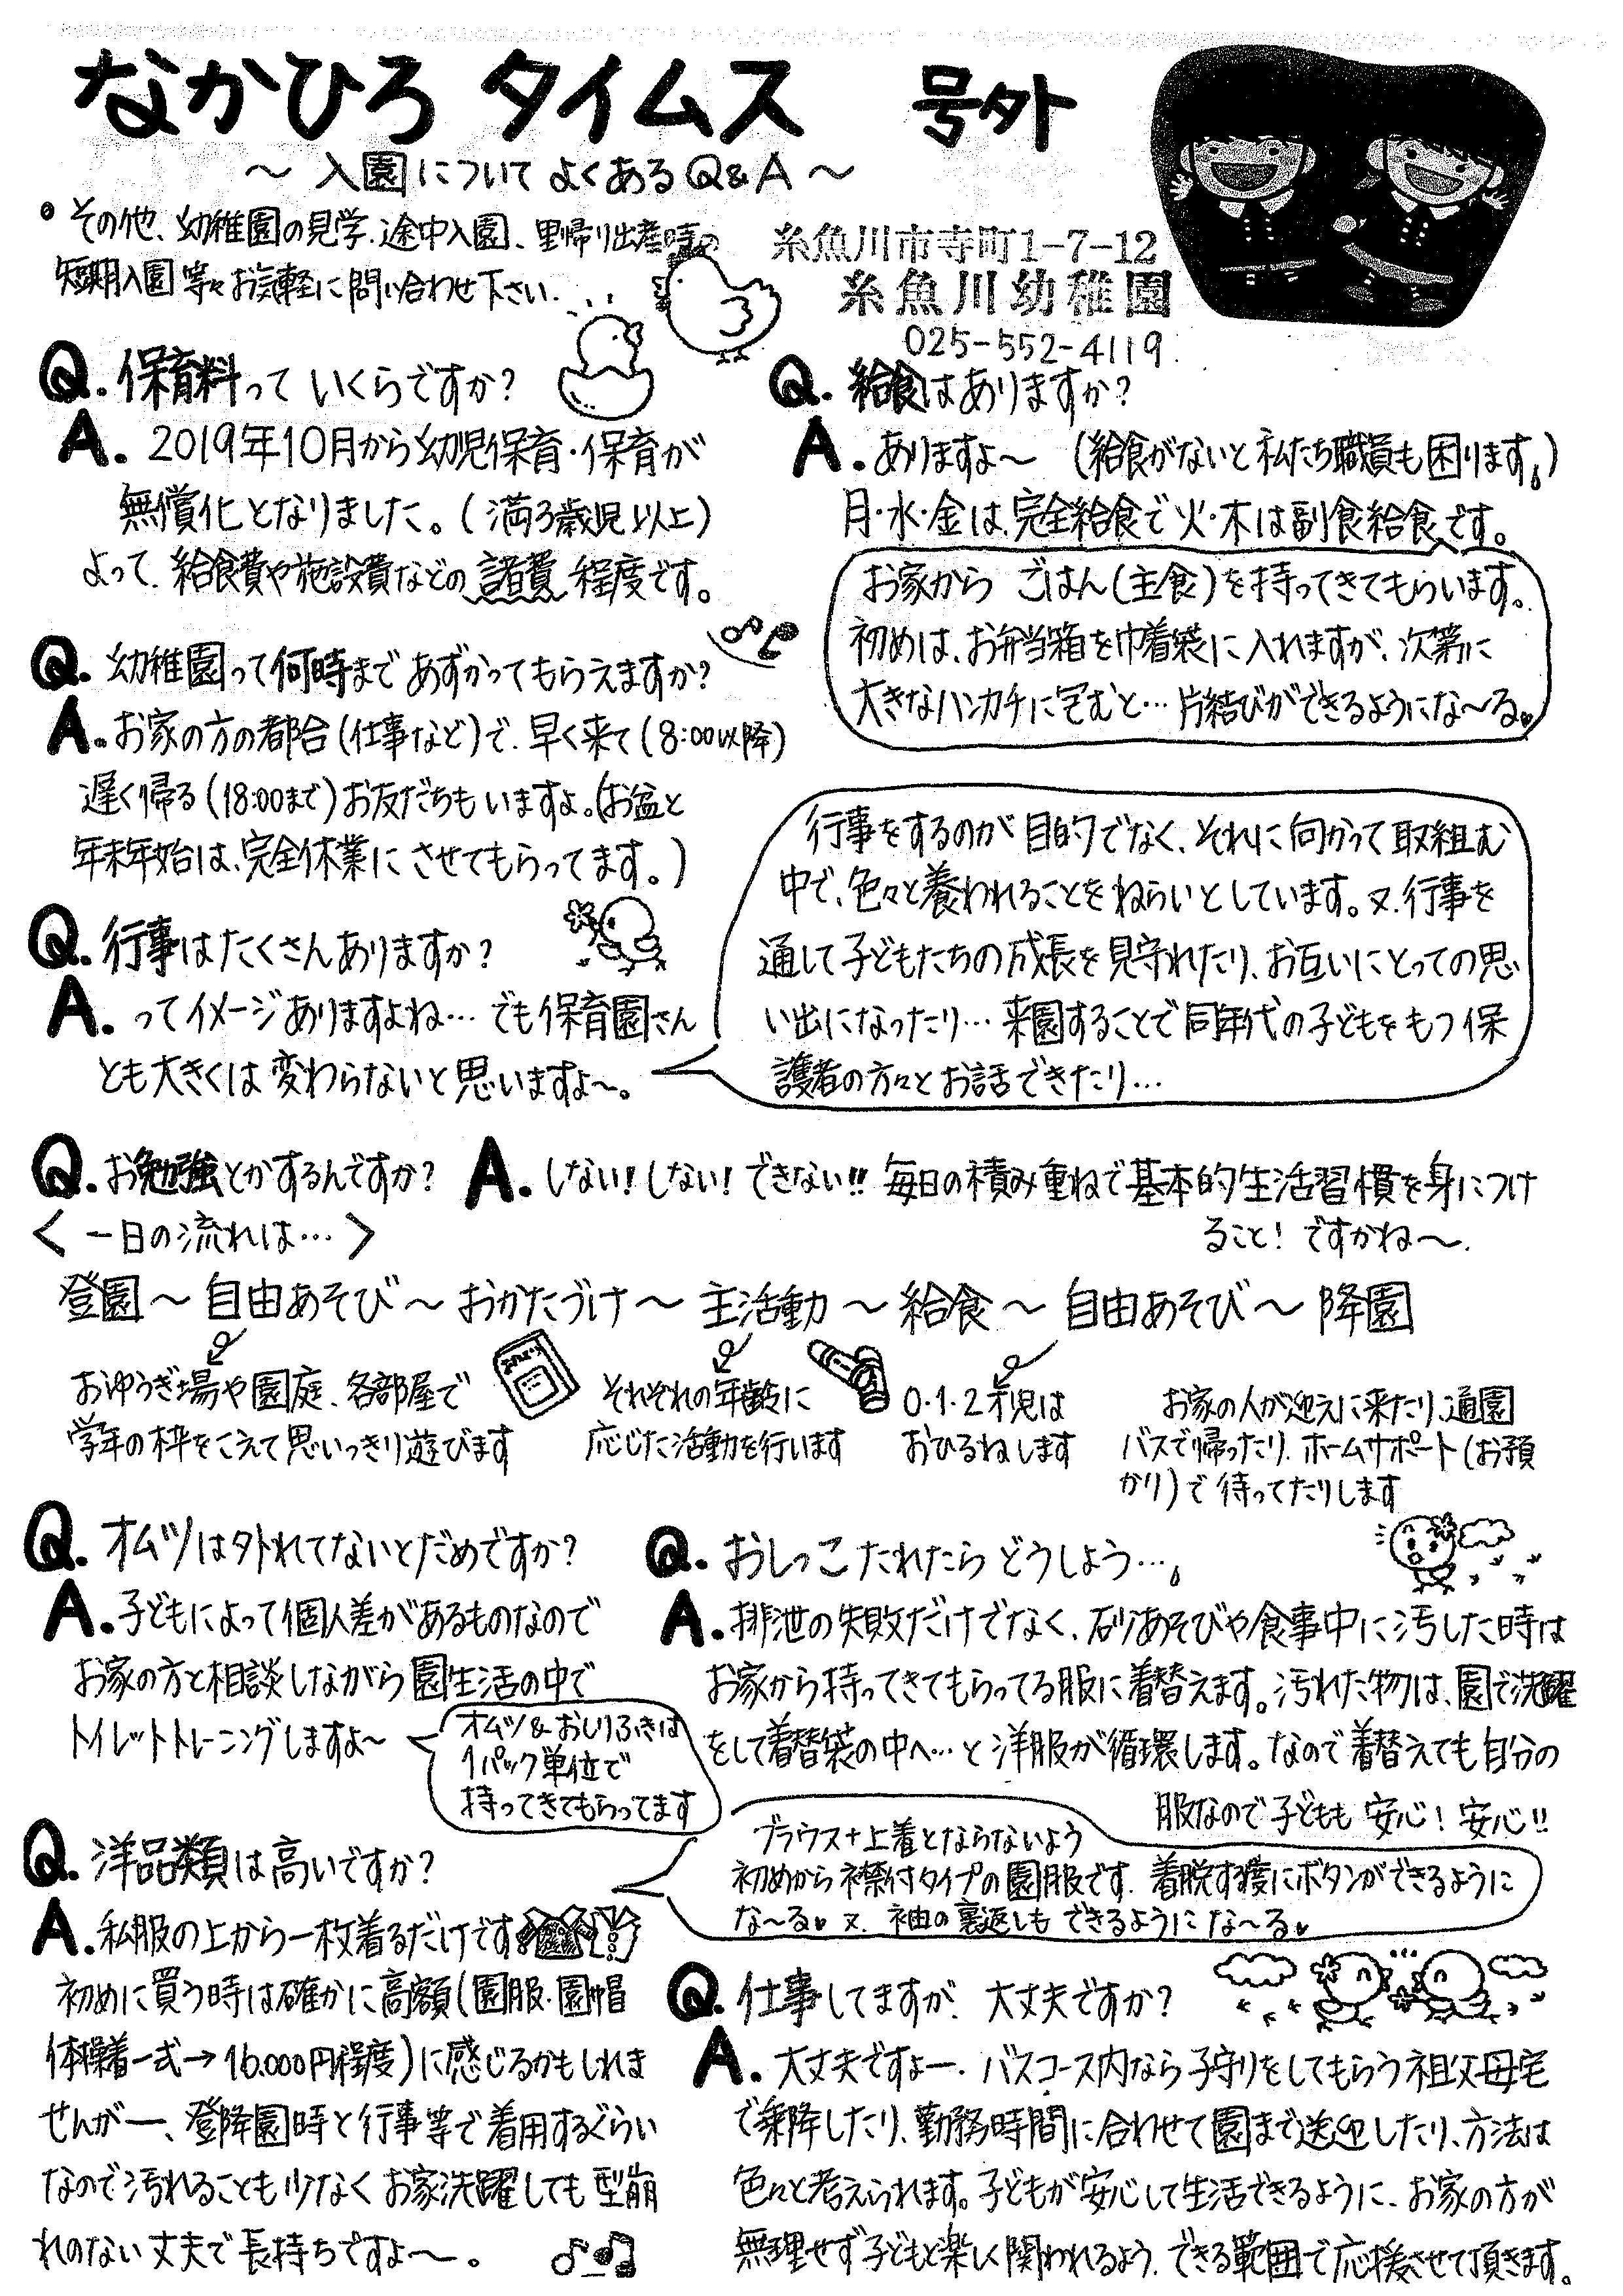 なかひろ タイムス 号外
～ 入園について よくあるQ&A ～
• その他、幼稚園の見学、途中入園、里帰り出産時の
短期入園 等々お気軽に問い合わせ下さい.
糸魚川市寺町1-7-12
糸魚川幼稚園
025-552-4119
Q. 保育料って いくらですか?
A. 2019年10月から幼児保育・保育が
無償化となりました。(満3歳児以上)
よって、給食費や施設費などの諸費程度です。
Q. 給食はありますか?
A. ありますよ～ (給食がないと私たち職員も困ります。)
月・水・金は、完全給食で火・木は副食給食です。
お家から ごはん(主食)を持ってきてもらいます。
初めは、お弁当箱を巾着袋に入れますが、次第に
大きなハンカチに包むと… 片結びができるようにな～る♥
Q. 幼稚園って何時まで あずかってもらえますか?
A. お家の方の都合(仕事など)で、早く来て(8:00以降)
遅く帰る(18:00まで)お友だちもいますよ。(お盆と
年末年始は、完全休業に させてもらってます。)
Q. 行事はたくさんありますか?
A. ってイメージありますよね… でも保育園さん
とも大きくは変わらないと思いますよ～。
行事をするのが目的でなく、それに向かって取組む
中で、色々と養われることをねらいとしています。又、行事を
通して子どもたちの成長を見守れたり、お互いにとっての思
い出になったり… 来園することで同年代の子どもをもつ保
護者の方々とお話できたり…
Q. お勉強とかするんですか? A. しない! しない! できない!! 毎日の積み重ねで基本的生活習慣を身につけ
ること! ですかね～.
< 一日の流れは… >
登園 ～ 自由あそび ～ おかたづけ ～ 主活動 ～ 給食 ～ 自由あそび ～ 降園
おゆうぎ場や園庭、各部屋で
学年の枠をこえて思いっきり遊びます
それぞれの年齢に
応じた活動を行います
0・1・2才児は
おひるねします
お家の人が迎えに来たり、通園
バスで帰ったり、ホームサポート(お預
かり)で待ってたりします
Q. オムツは外れてないとだめですか?
A. 子どもによって個人差があるものなので
お家の方と相談しながら園生活の中で
トイレットトレーニングしますよ～
オムツ&おしりふきは
1パック単位で
持ってきてもらってます
Q. おしっこ たれたら どうしよう…
A. 排泄の失敗だけでなく、砂あそびや食事中に汚した時は
お家から持ってきてもらってる服に着替えます。汚れた物は、園で洗濯
をして着替袋の中へ… と洋服が循環します。なので着替えても自分の
服なので子どもも 安心! 安心!!
Q. 洋品類は高いですか?
A. 私服の上から一枚着るだけです
初めに買う時は確かに高額(園服・園帽
体操着一式→16.000円程度)に感じるかもしれま
せんがー、登降園時と行事等で着用するぐらい
なので汚れることも少なく お家洗濯しても型崩
れのない丈夫で長持ちですよ～。
ブラウス+上着とならないよう
初めから襟付タイプの園服です. 着脱する度にボタンができるように
な～る♥ 又、袖の裏返しも できるように な～る♥
Q. 仕事してますが、大丈夫ですか?
A. 大丈夫ですよー. バスコース内なら子守りをしてもらう祖父母宅
で乗降したり、勤務時間に合わせて園まで送迎したり、方法は
色々と考えられます。子どもが安心して生活できるように、お家の方が
無理せず子どもと楽しく関われるよう、できる範囲で応援させて頂きます。